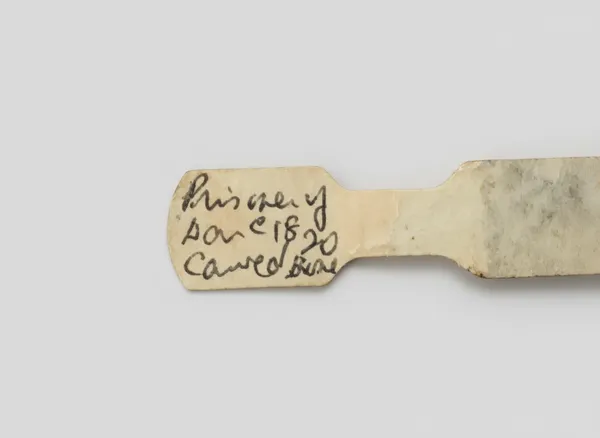 Prisoner of
War c 1820
Carved Bone